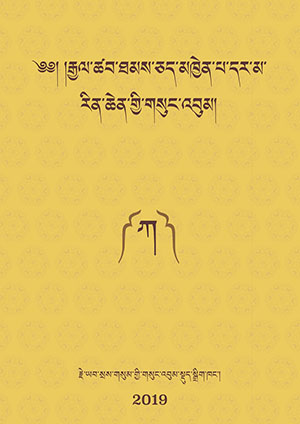 ༄༅། །རྒྱལ་ཚབ་ཐམས་ཅད་མཁྱེན་པ་དར་མ་
རིན་ཆེན་གྱི་གསུང་འབུམ།
༼ ཀ ༽
རྗེ་ཡབ་སྲས་གསུམ་གྱི་གསུང་འབུམ་སྡུད་སྒྲིག་ཁང་།
2019